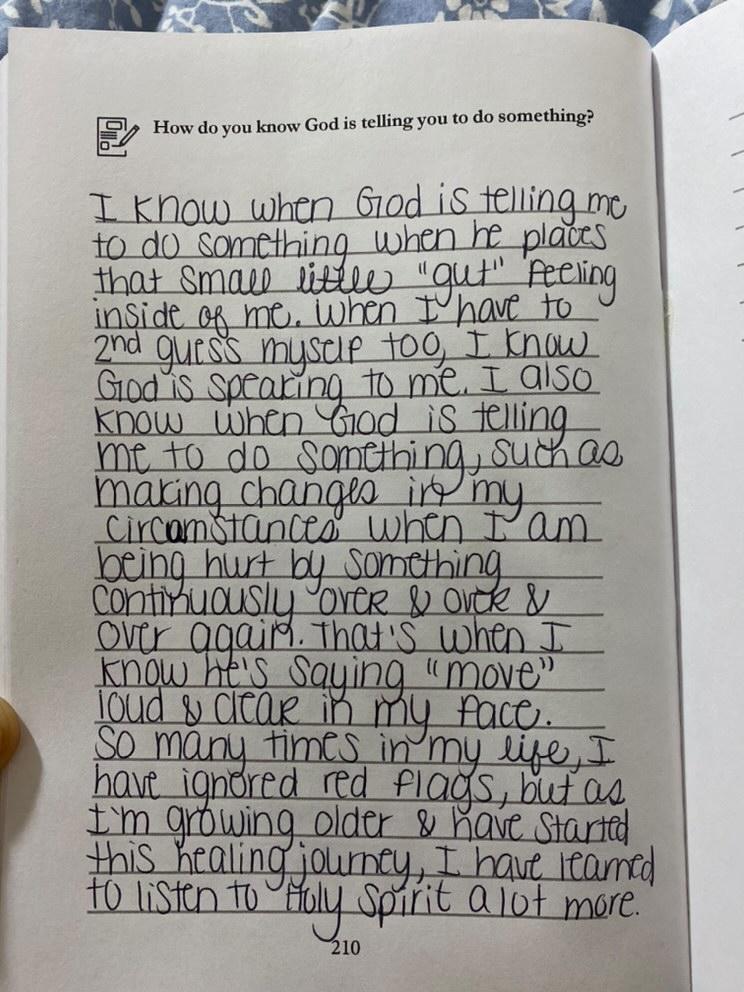 How do you know God is telling you to do something?
I know when God is telling me
to do something when he places
that small little "gut" feeling
inside of me. When I have to
2nd guess myself too, I know
God is speaking to me. I also
know when God is telling
me to do something, such as
making changes in my
circumstances when I am
being hurt by something
continuously over & over &
over again. That's when I
know he's saying "move"
loud & clear in my face.
So many times in my life, I
have ignored red flags, but as
I'm growing older & have started
this healing journey, I have learned
to listen to Holy Spirit a lot more.
210